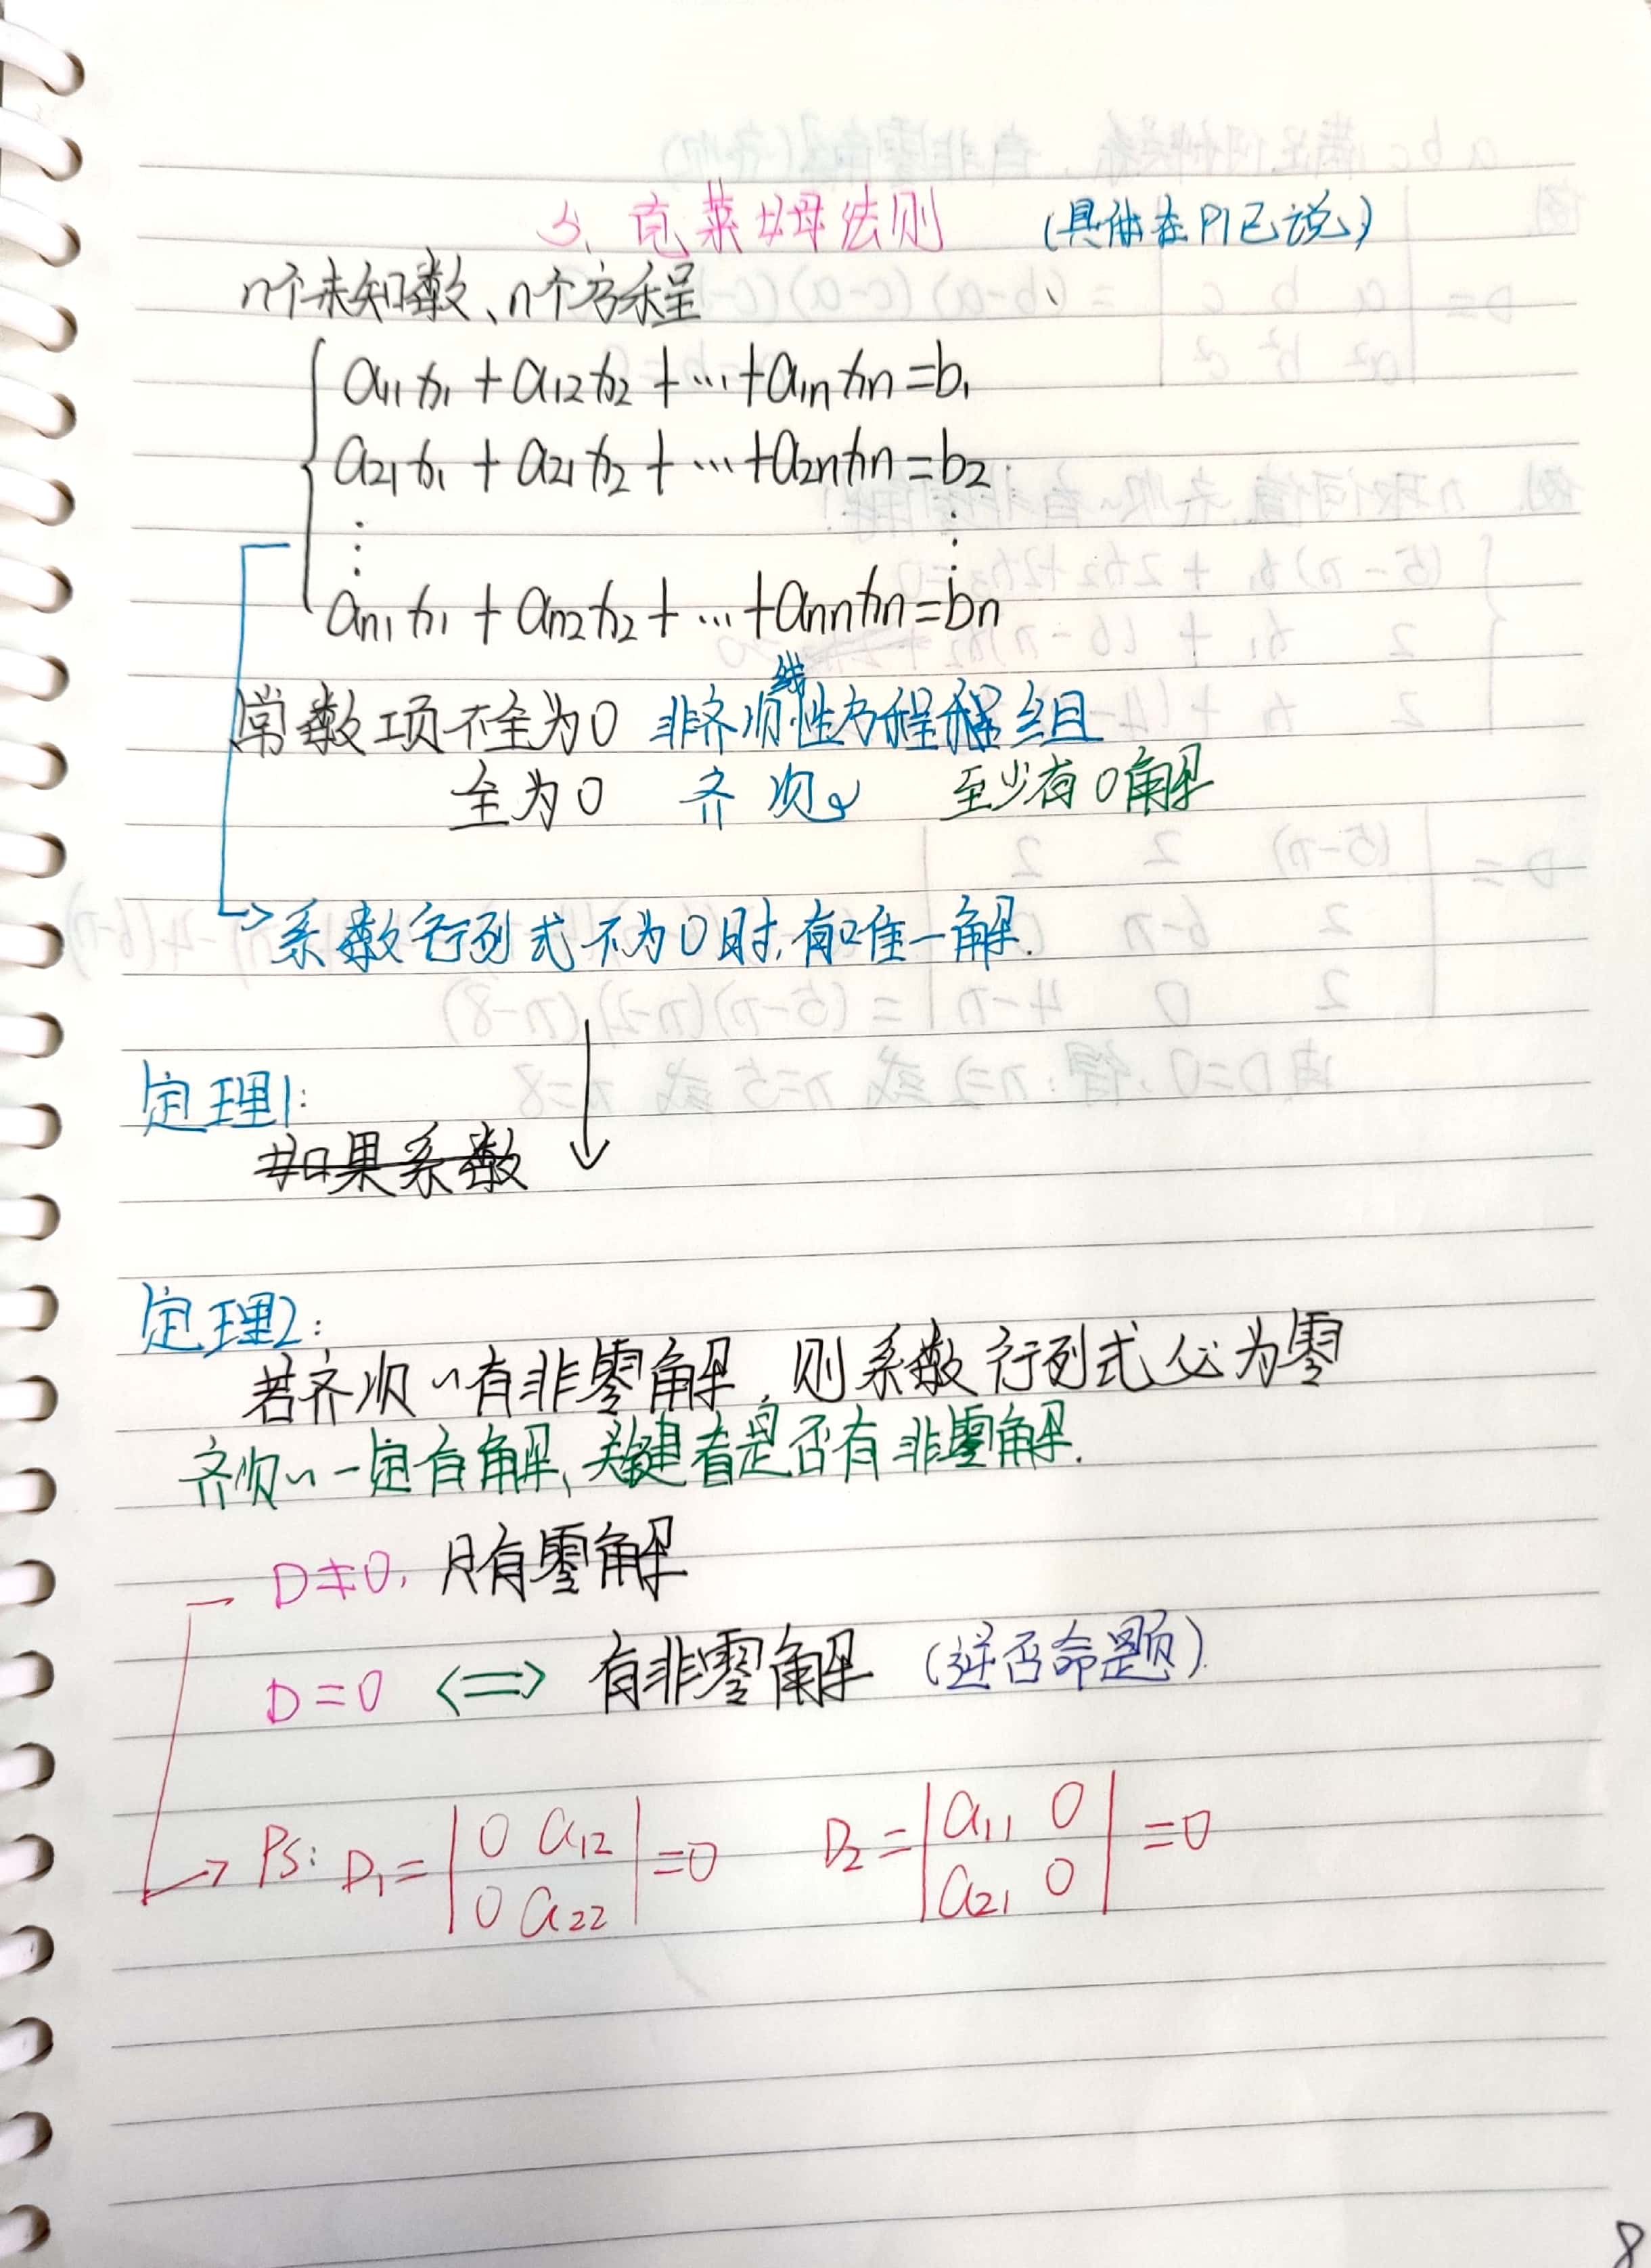 5、克莱姆法则 (具体在P1已说)
n个未知数、n个方程
a11x1 + a12x2 + … + a1nxn = b1
a21x1 + a21x2 + … + a2nxn = b2
⋮ ⋮
an1x1 + an2x2 + … + annxn = bn
常数项不全为0 非齐次线性方程组
全为0 齐次~ 至少有0解
→系数行列式不为0时,有唯一解.
定理1:
如果系数
定理2:
若齐次~有非零解,则系数行列式必为零
齐次~一定有解,关键看是否有非零解.
D≠0, 只有零解
D=0 <=> 有非零解 (逆否命题).
→ PS: D1 = |0 a12| =0 D2 = |a11 0| =0
|0 a22| |a21 0|
8